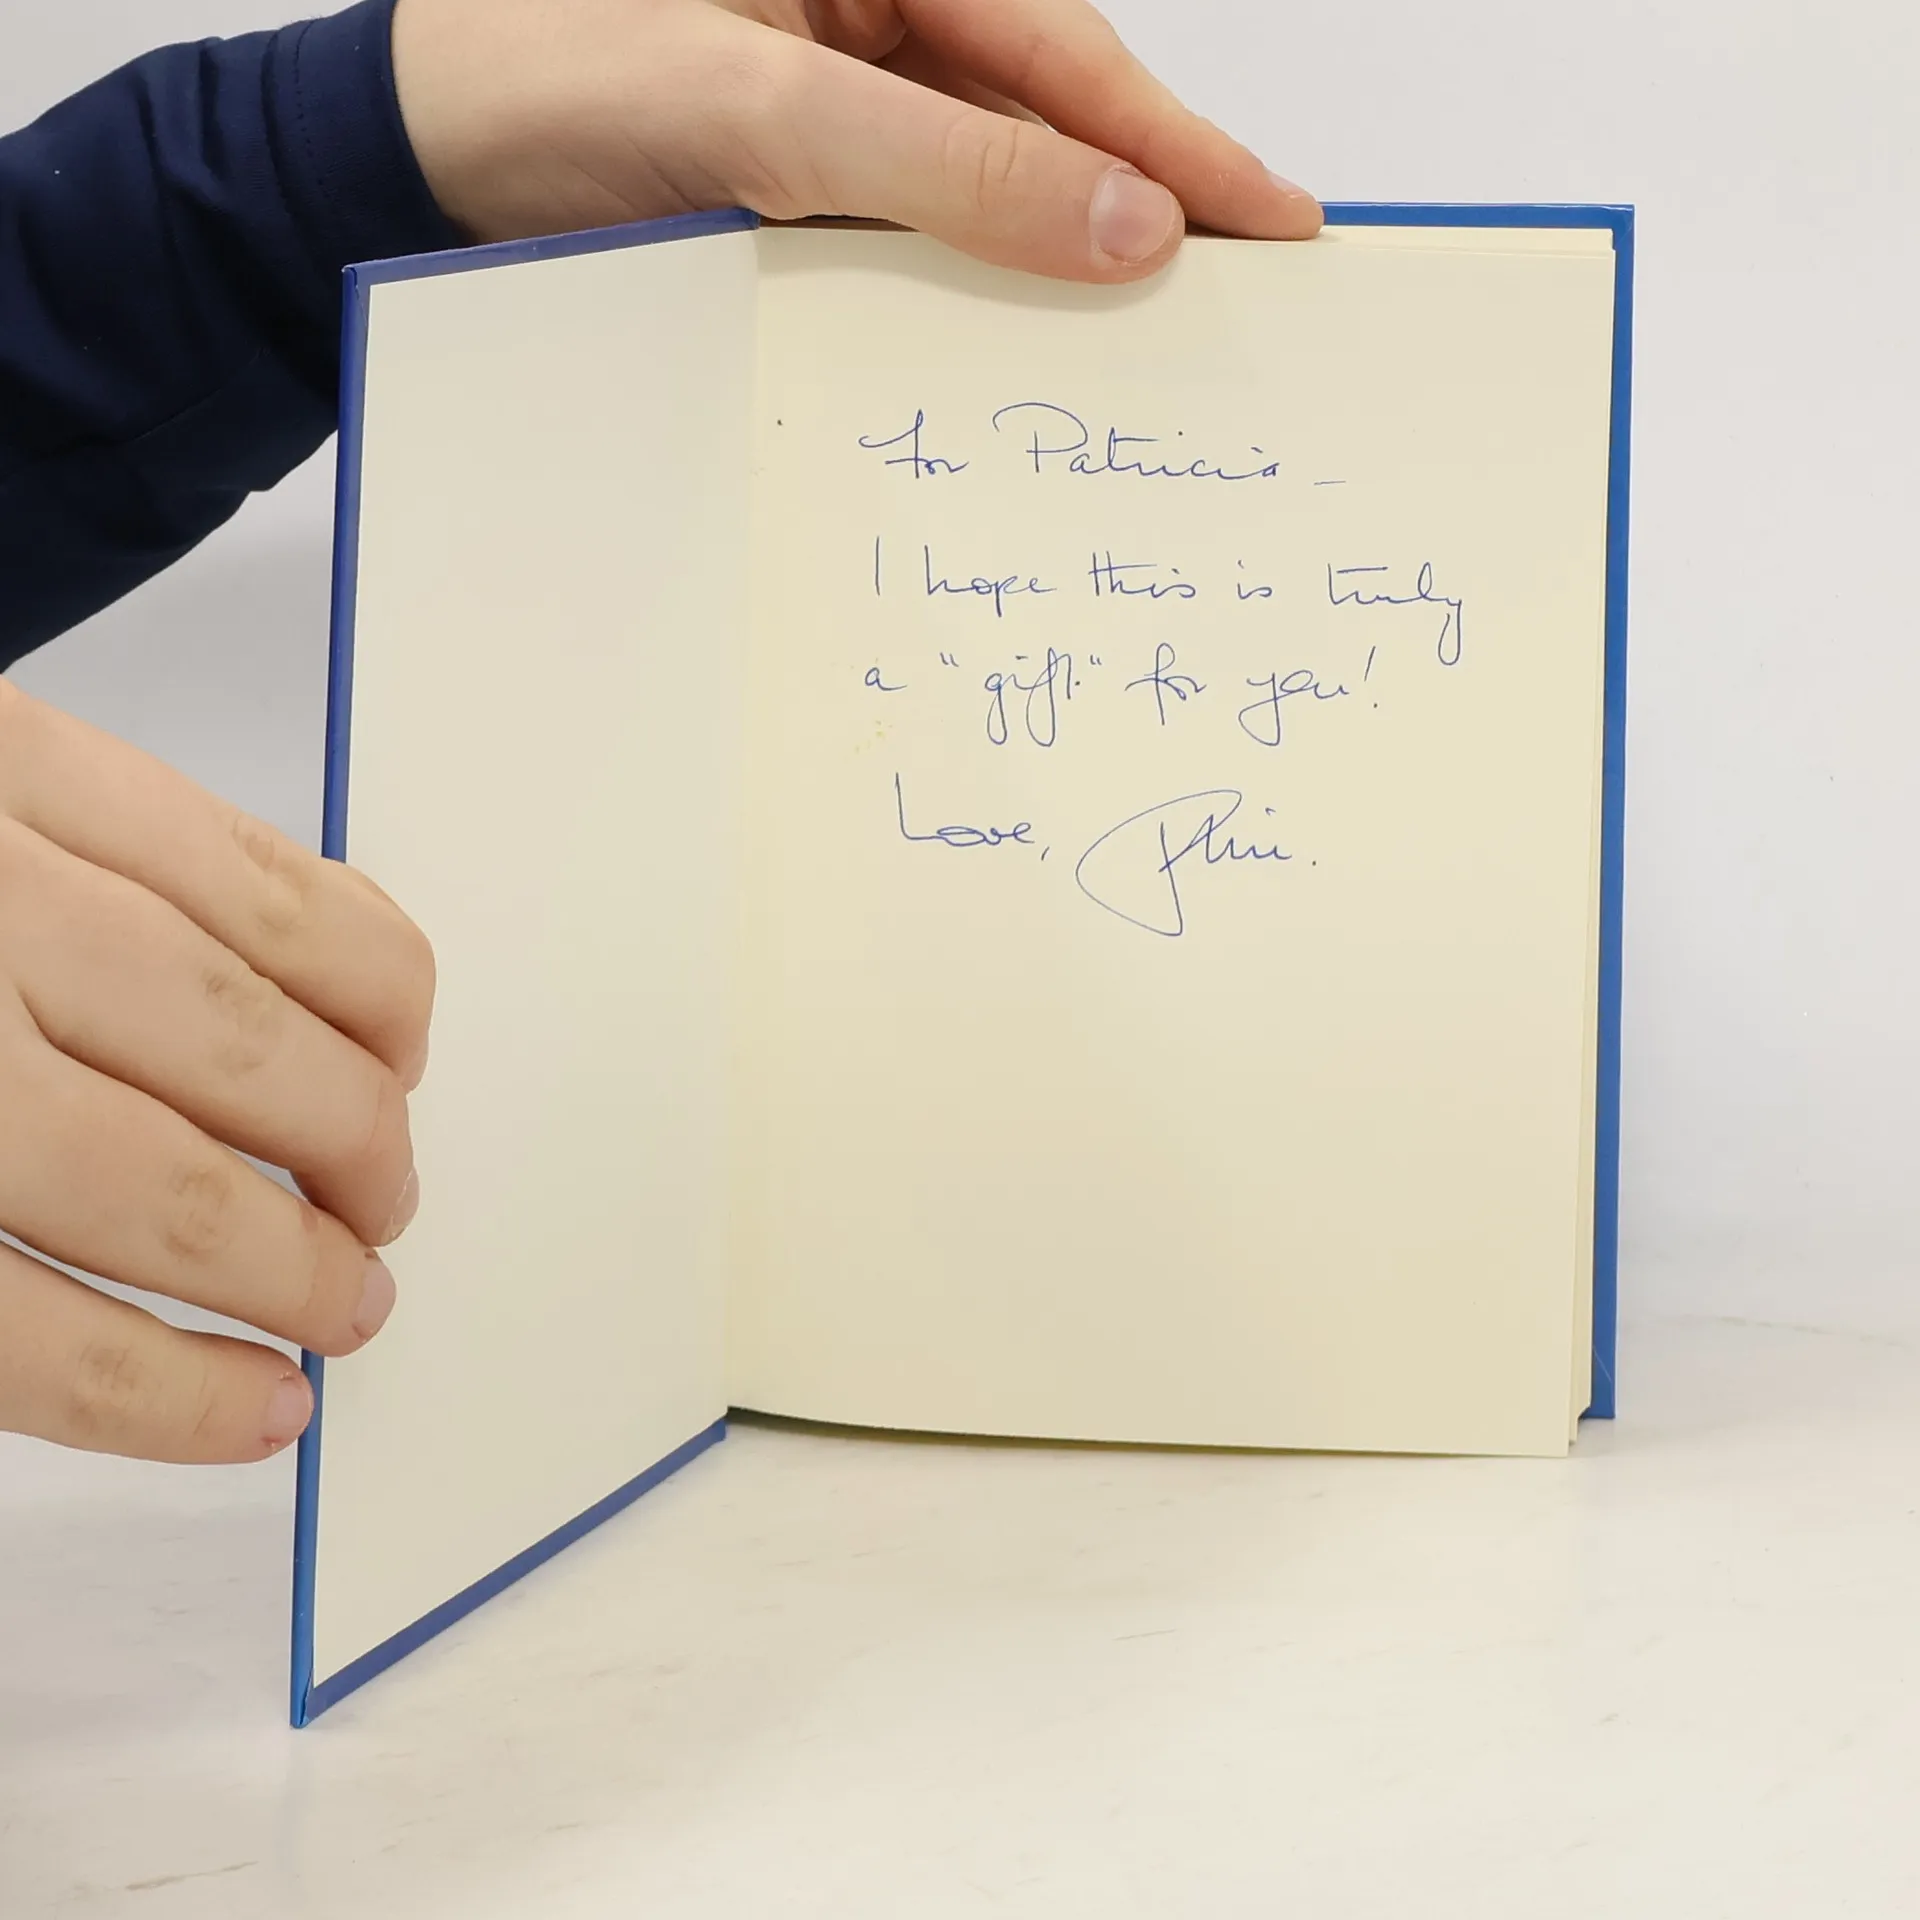 For Patricia –
I hope this is truly
a "gift" for you!
Love,